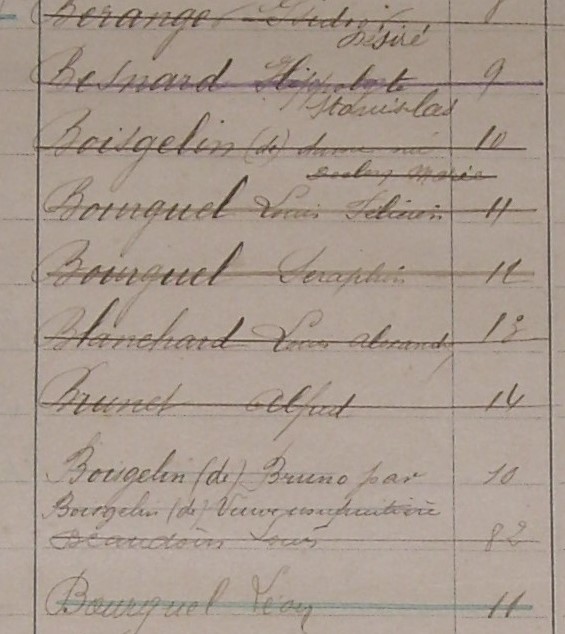 Béranger Isidor 8
Désiré
Besnard Hippolyte 9
Stanislas
Boisgelin (de) dame née 10
Marie
Bourguel Louis Félicien 11
Bourguel Seraphin 12
Blanchard Louis Alexandre 13
Brunet Alfred 14
Boisgelin (de) Bruno par 10
Boisgelin (de) Veuve usufruitière
Beaudoin Louis 82
Bourguel Léon 11